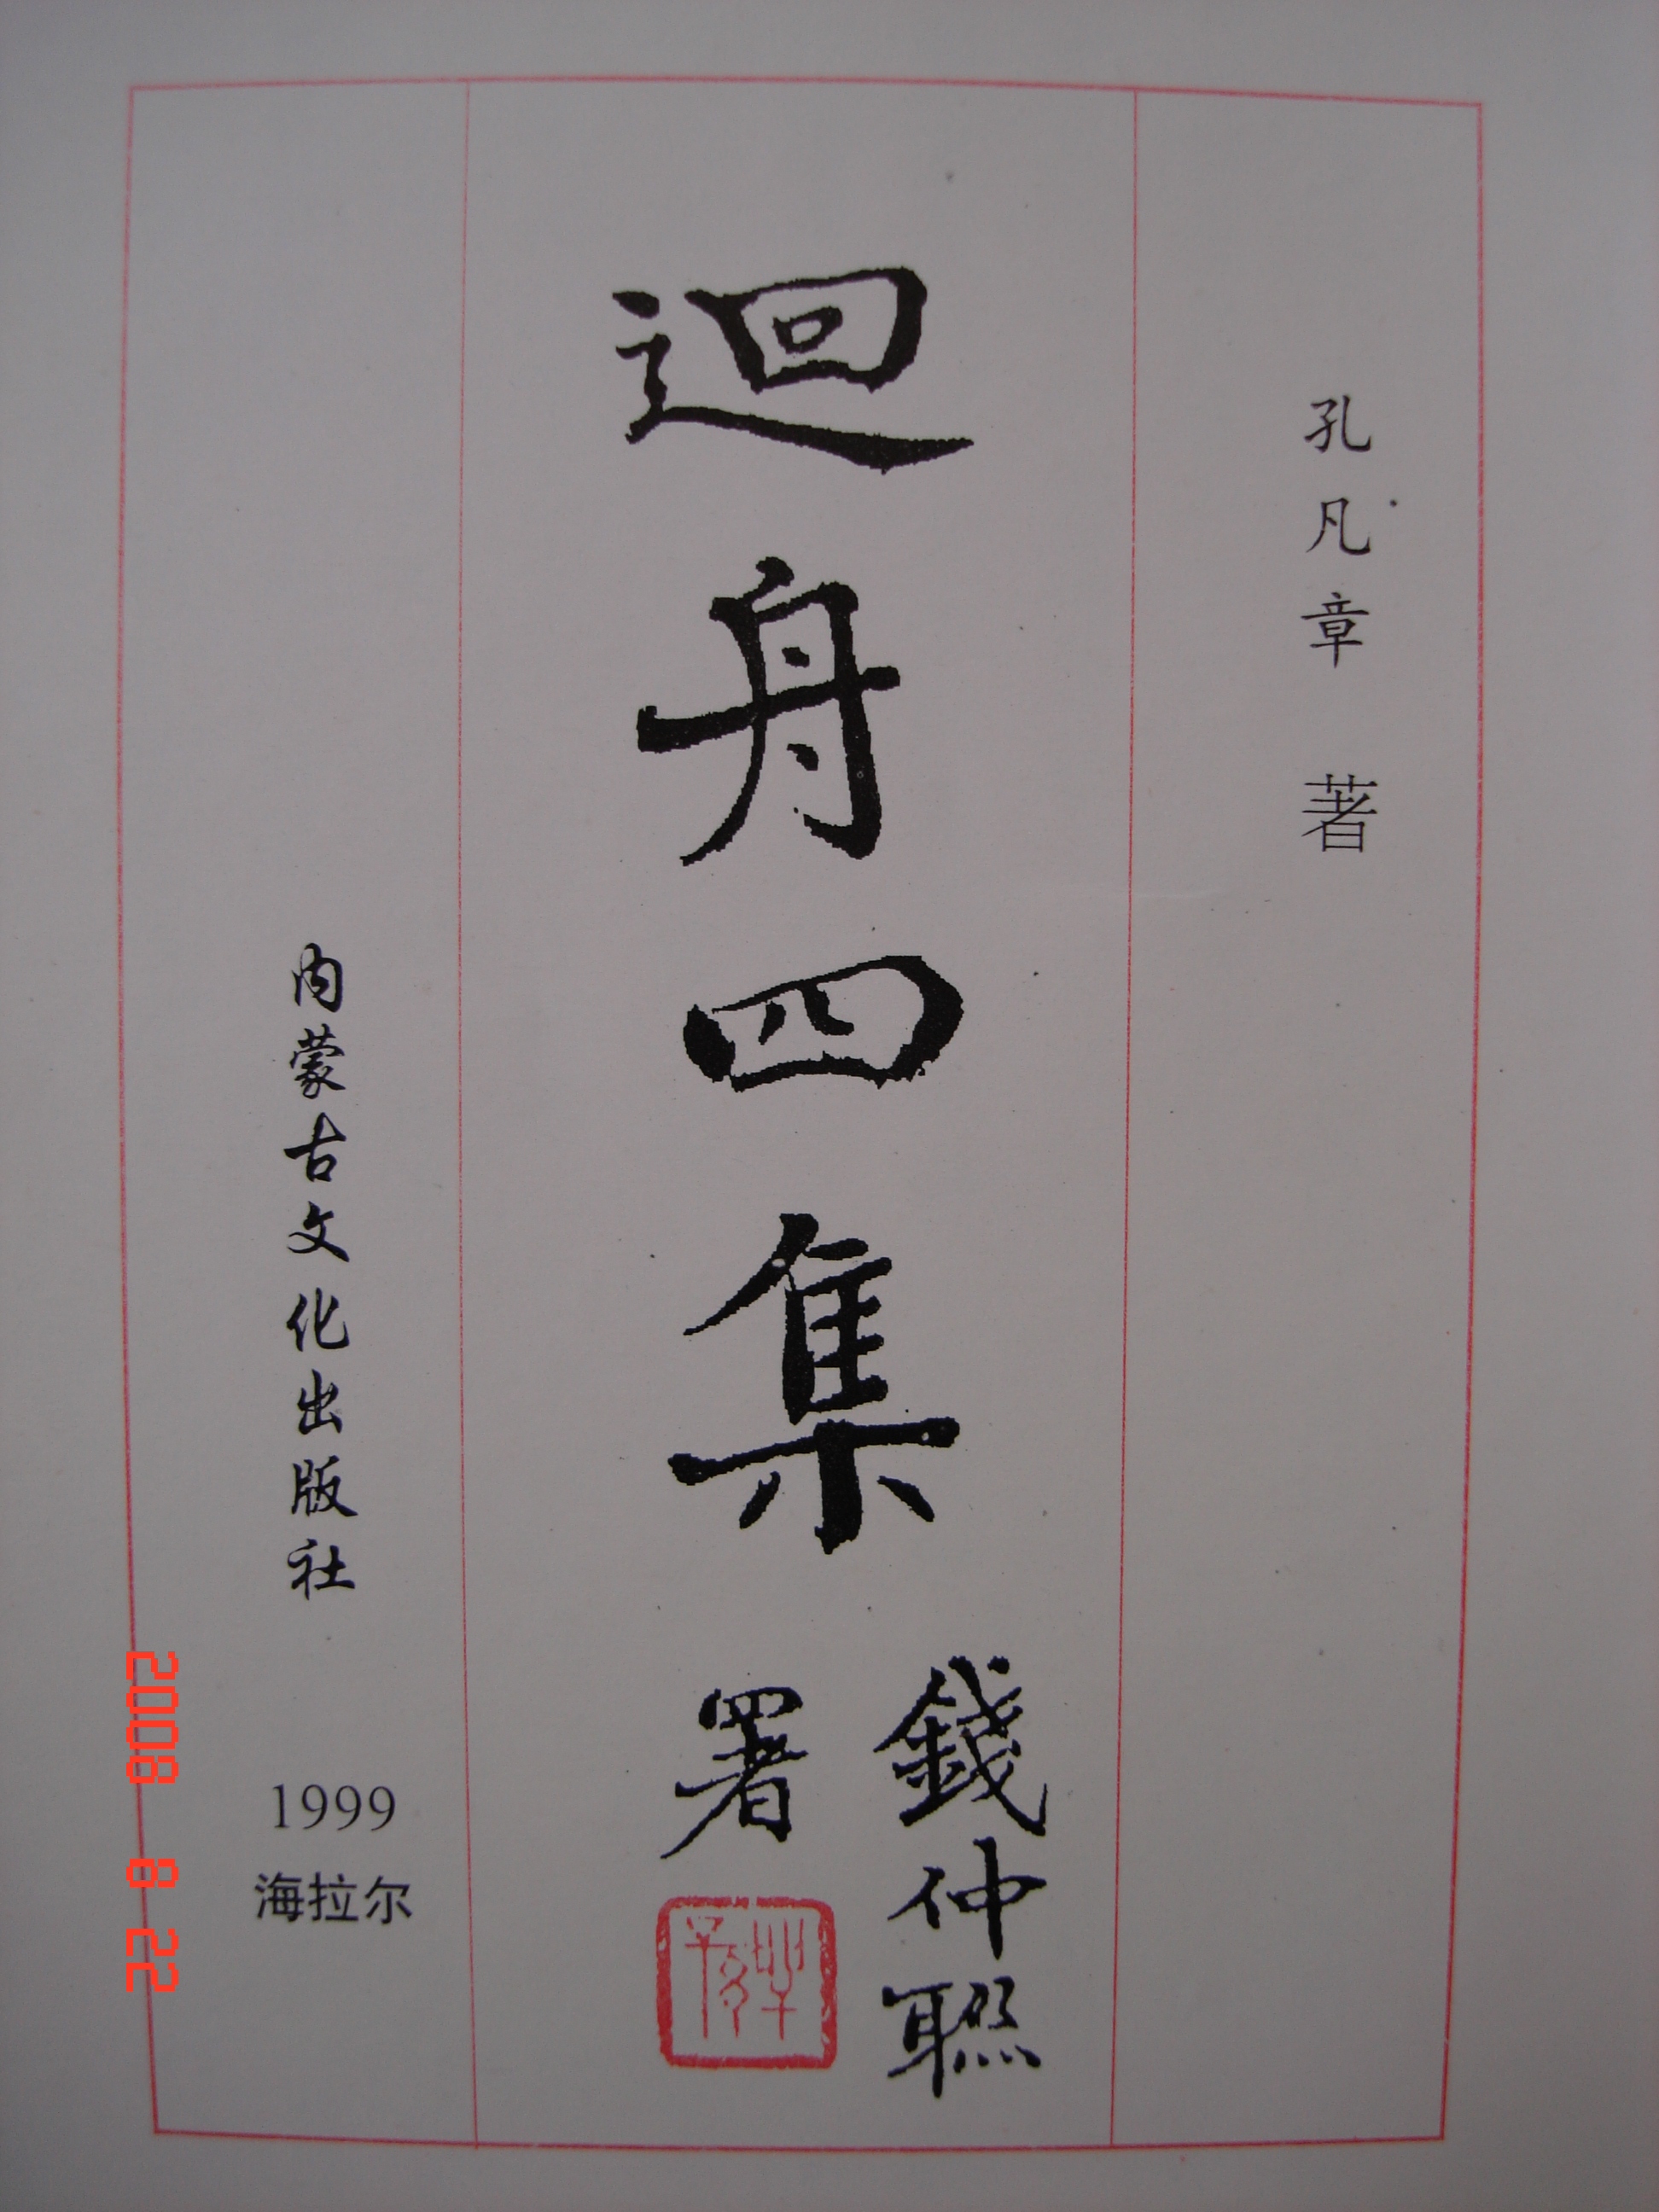 孔凡章 著
迴舟四集
錢仲聯
署
内蒙古文化出版社
1999
海拉尔
2008 8 22